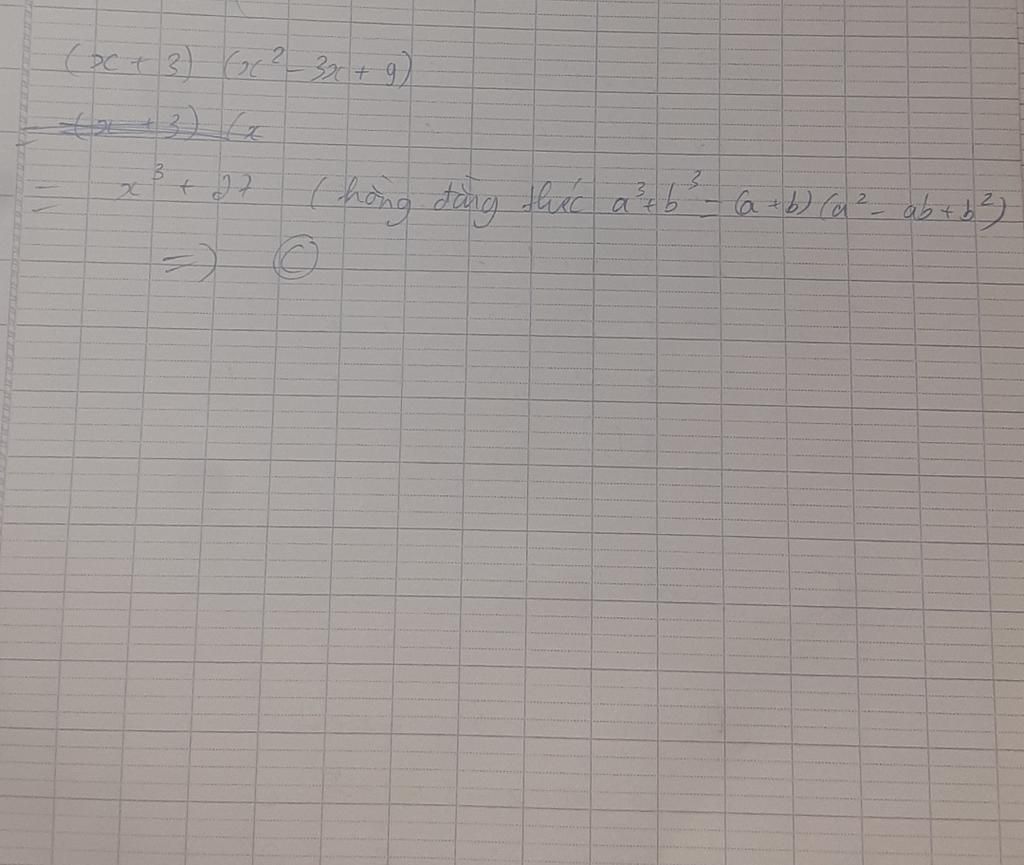 (x + 3) (x² - 3x + 9)
= (x + 3) (x
= x³ + 27 (hằng đẳng thức a³ + b³ = (a + b) (a² - ab + b²)
=> C